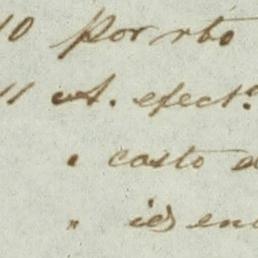 10 Por rbo
11 A. efect.
" costo d
" id en